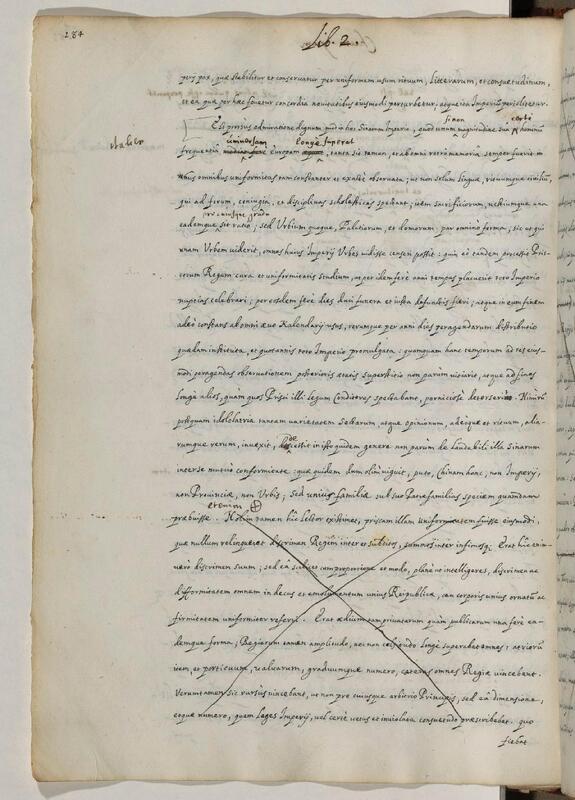 184
Lib. 2.
perij pax, quæ stabilitur et conservatur per uniformem usum rituum, Litterarum, et consuetudinum,
et ea quæ per hæc fovetur concordia novitatibus eiusmodi perturbetur, atque ita Imperium periclitetur.
si non certe
Est prorsus admiratione dignum quod in hoc Sinarum Imperio, quod unum magnitudine sua hominum
italico
universam longe superat
frequentia Europam tanta sit tamen, et ab omni retro memoria, semper fuerit in
rebus omnibus uniformitas tam constanter et exacte observata; ut non solum linguæ, rituumque civilium,
qui ad forum, coniugia, et disciplinas scholasticas spectant; item sacrificiorum, vestiumque una
pro cuiusque gradu
eademque sit ratio; sed Urbium quoque, Palatiorum, et domorum par omnino forma; sic ut qui
unam Urbem viderit, omnes huius Imperij Urbes vidisse censeri possit: quin eo tandem processit Pris-
corum Regum cura et uniformitatis studium, ut per idem fere anni tempus placuerit toto Imperio
nuptias celebrari; per eosdem fere dies duci funera et iusta defunctis fieri; atque in eum finem
adeo constans ab omni ævo Kalendarij usus, rerumque per anni dies peragendarum distributio
quædam instituta, et quotannis toto Imperio promulgata: quamquam hanc temporum ad res eius-
modi peragendas observationem posterioris ætatis superstitio non parum vitiavit, atque ad fines
longe alios, quàm quos Prisci illi legum Conditores spectabant, perniciose detorserit. Nimirum
postquam idololatria tantam varietatem Sectarum atque opinionum, adeoque et rituum, alia-
rumque rerum, invexit, decessit in isto quidem genere non parum de laudabili illa Sinarum
inter se mutuo conformitate: quæ quidem dum olim viguit, puto, Chinam hanc, non Imperij,
non Provinciæ, non Urbis; sed unius familiæ sub suo Patrefamilias speciem quamdam
etenim
præbuisse. Nolim tamen hic Lector existimet, priscam illam uniformitatem fuisse eiusmodi,
quæ nullum relinqueret discrimen Regem inter et subditos, summos inter infimosque. Erat hic eni-
mvero discrimen suum; sed eâ subinde cum proportione et modo, plane ut intelligeres, discrimen ac
difformitatem omnem in decus et emolumentum unius Reipublicæ, ceu corporis unius ornatum ac
firmitatem uniformiter referri. Erat ædium tam privatarum quàm publicarum una fere ea-
demque forma; Regiarum tamen amplitudo, nec non celsitudo longe superabat omnes; atriorum
item, et porticuum, valvarum, graduumque numero, cæteras omnes Regiæ vincebant.
Verumtamen sic rursus vincebant, ut non pro cuiusque arbitrio Principis, sed eâ dimensione,
eoque numero, quem leges Imperij, vel certe vetus et inviolata consuetudo præscribebat. quo
fiebat